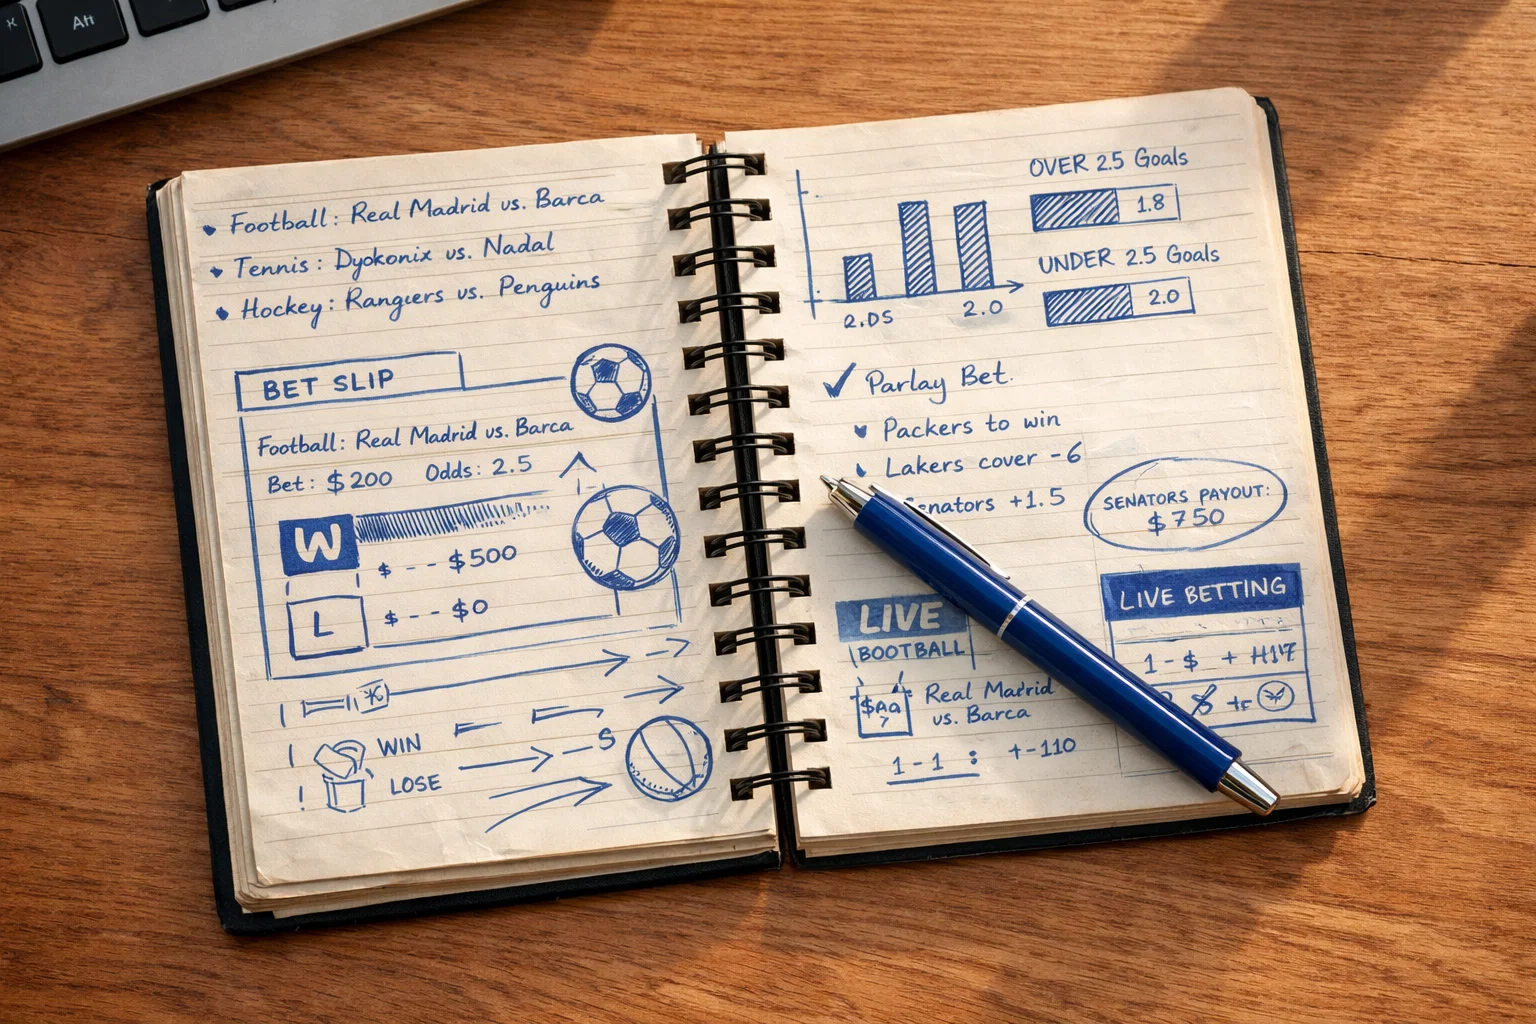 Alt
Football: Real Madrid vs. Barca
Tennis: Dyokonix vs. Nadal
Hockey: Rangiers vs. Penguins
BET SLIP
Football: Real Madrid vs. Barca
Bet: $200 Odds: 2.5
W
$ -- $500
L
$ -- $0
WIN
LOSE
OVER 2.5 Goals
1.8
UNDER 2.5 Goals
2.0
2.DS 2.0
✓ Parlay Bet.
Packers to win
Lakers cover -6
enators +1.5
SENATORS PAYOUT:
$750
LIVE
BOOTBALL
Real Madrid
vs. Barca
1-1 : +-110
LIVE BETTING
1 - $ +